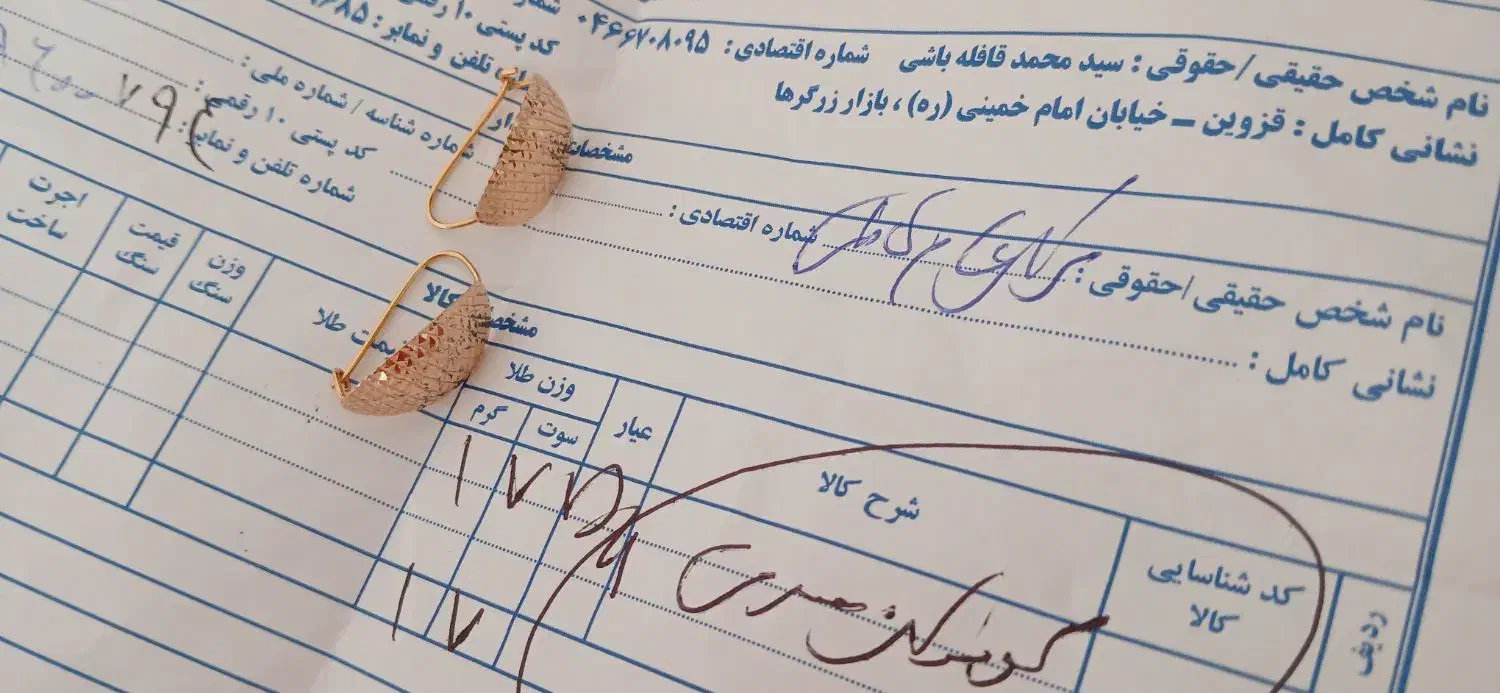 شمار
کد پستی ۱۰ رقمی
تلفن و نمابر : ۶۸۵
نام شخص حقیقی/حقوقی : سید محمد قافله باشی شماره اقتصادی : ۰۴۶۶۷۰۸۰۹۵
نشانی کامل : قزوین ــ خیابان امام خمینی (ره) ، بازار زرگرها
مشخصات
نام شخص حقیقی/حقوقی : شماره اقتصادی :
شماره شناسه / شماره ملی :
نشانی کامل :
کد پستی ۱۰ رقمی :
شماره تلفن و نمابر :
مشخصات کالا
ردیف
کد شناسایی کالا
شرح کالا
عیار
وزن طلا
سوت گرم
قیمت طلا
وزن سنگ
قیمت سنگ
اجرت ساخت
گوشواره
۱ ۷
۱ ۷